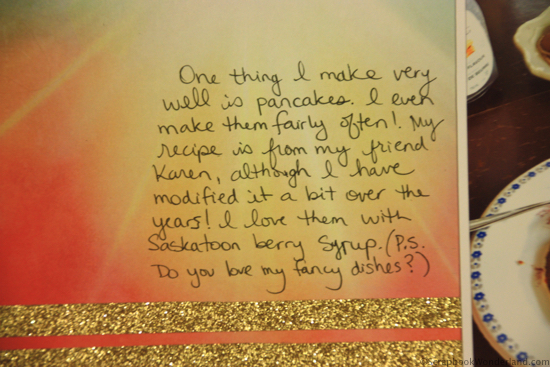 One thing I make very
well is pancakes. I even
make them fairly often! My
recipe is from my friend
Karen, although I have
modified it a bit over the
years! I love them with
Saskatoon berry syrup. (P.S.
Do you love my fancy dishes?)